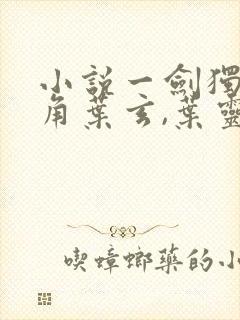 小説一劍獨
角葉玄,葉靈
喫蟑螂藥的小